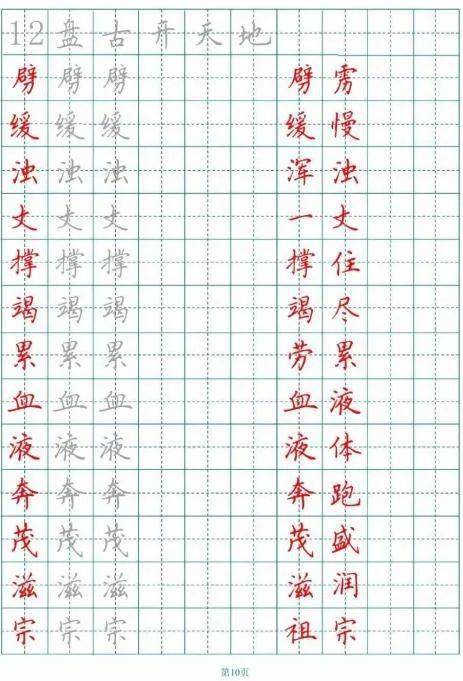 12盘古开天地
劈劈劈 劈雳
缓缓缓 缓慢
浊浊浊 浑浊
丈丈丈 一丈
撑撑撑 撑住
竭竭竭 竭尽
累累累 劳累
血血血 血液
液液液 液体
奔奔奔 奔跑
茂茂茂 茂盛
滋滋滋 滋润
宗宗宗 祖宗
第10页